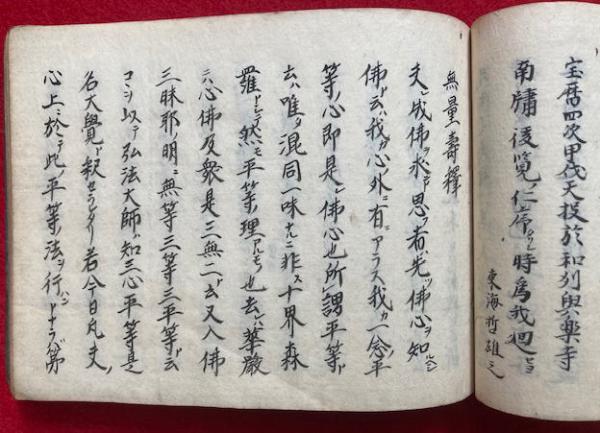 宝暦四次甲戌天投於和州與楽寺
南牖後覧ノ仁停
時爲我廻
東海哲雄之
無量壽釋
夫レ成佛ヲ求メ思フ者ハ先ツ佛心ヲ知
佛ト云ハ我カ心ノ外ニ有ニアラス我カ一念ノ平
等ノ心即是レ佛心也所謂平等ト
云ハ唯タ混同一味ナルニ非ス十界森
羅トシテ然モ平等ノ理アルモノ也去レハ華嚴
ニハ心佛及衆是三無二ト云又入佛
三昧耶ノ明ニ無等三等三平等ト云
コヲ以テ弘法大師ハ知三心平等是
名大覺ト釈セラレタリ若今日凡夫ノ
心上ニ於テ此ノ平等ノ法ヲ行
第